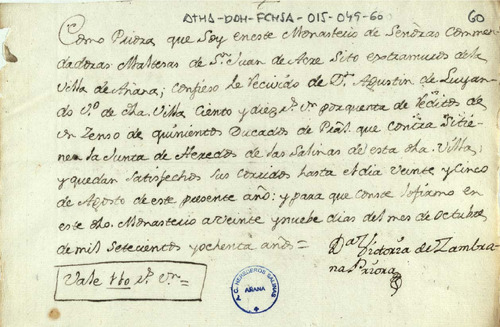 ATHA-DOH-FCHSA-015-049-60
60
Como Priora que Soy en este Monasterio de Señoras Comen
dadoras Maltesas de Sn Juan de Acre Sito extramuros de la
Villa de Añana; Confieso he Recivido de Dn Agustin de Luyan
do Vº de dha Villa Ciento y diez rs vn por quenta de Reditos de
un Zenso de quinientos Ducados de Pral. que Contra Si tie
ne la Junta de Herederos de las Salinas de esta dha Villa;
y quedan Satisfechos sus Corridos hasta el dia Veinte y Cinco
de Agosto de este presente año: y para que Conste lo firmo en
este dho Monasterio a Veinte y nuebe dias del mes de Octubre
de mil Setecientos y ochenta años=
Da Victoria de Zambra
na Priora
Vale 110 rs vn=
A.C. HEREDEROS SALINAS
AÑANA